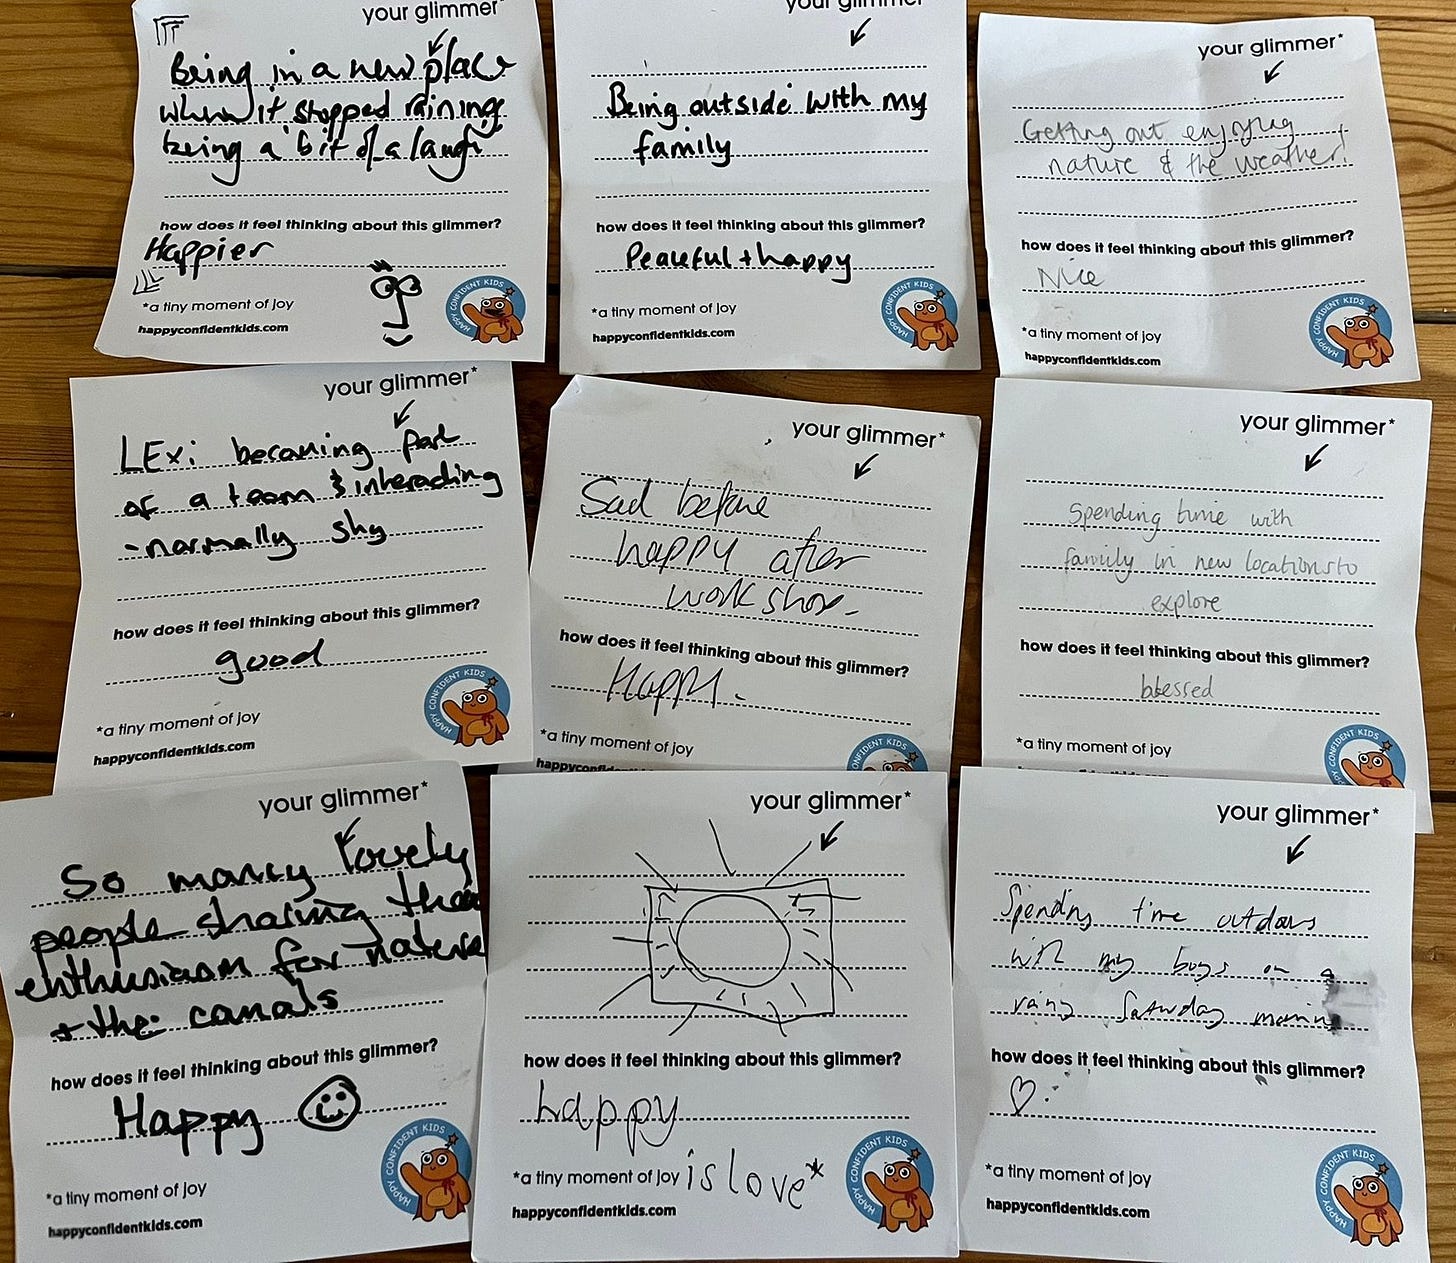 your glimmer*
Being in a new place
when it stopped raining
being a bit of a laugh
how does it feel thinking about this glimmer?
Happier
*a tiny moment of joy
happyconfidentkids.com
HAPPY CONFIDENT KIDS
your glimmer
Being outside with my
family
how does it feel thinking about this glimmer?
Peaceful + happy
*a tiny moment of joy
happyconfidentkids.com
HAPPY CONFIDENT KIDS
your glimmer*
Getting out enjoying
nature & the weather!
how does it feel thinking about this glimmer?
Nice
*a tiny moment of joy
happyconfidentkids.com
HAPPY CONFIDENT KIDS
your glimmer*
LExi becoming part
of a team & interacting
- normally shy
how does it feel thinking about this glimmer?
good
*a tiny moment of joy
happyconfidentkids.com
HAPPY CONFIDENT KIDS
your glimmer*
Sad before
happy after
workshop.
how does it feel thinking about this glimmer?
Happy.
*a tiny moment of joy
CONFIDENT KIDS
your glimmer*
Spending time with
family in new locations to
explore
how does it feel thinking about this glimmer?
blessed
*a tiny moment of joy
CONFIDENT KIDS
your glimmer*
So many lovely
people sharing their
enthusiasm for nature
+ the canals
how does it feel thinking about this glimmer?
Happy
*a tiny moment of joy
happyconfidentkids.com
HAPPY CONFIDENT KIDS
your glimmer*
how does it feel thinking about this glimmer?
happy
*a tiny moment of joy is love*
happyconfidentkids.com
HAPPY CONFIDENT KIDS
your glimmer*
Spending time outdoors
with my boys on a
rainy Saturday morning
how does it feel thinking about this glimmer?
*a tiny moment of joy
happyconfidentkids.com
HAPPY CONFIDENT KIDS